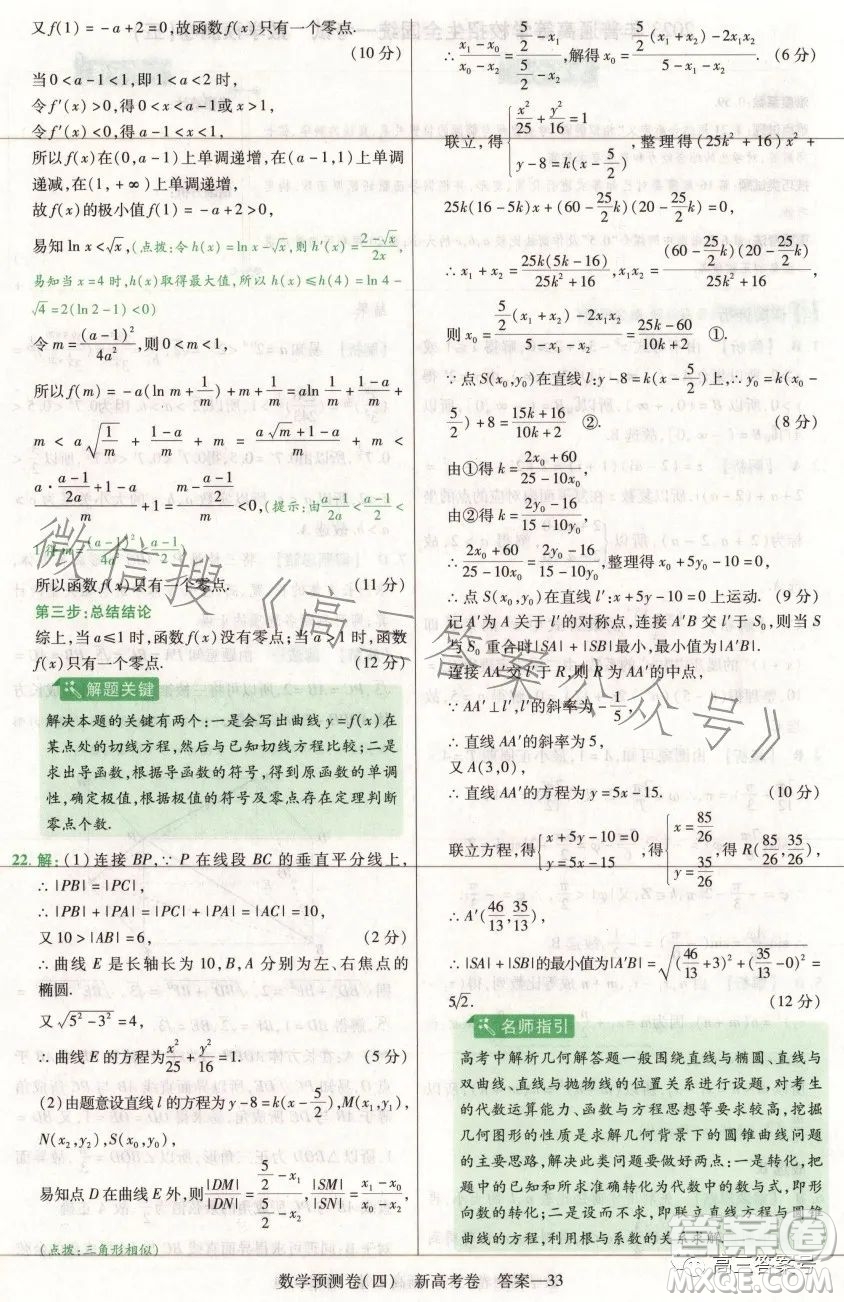 又f(1)=-a+2=0,故函数f(x)只有一个零点.
(10分)
当0<a-1<1,即1<a<2时,
令f′(x)>0,得0<x<a-1或x>1,
令f′(x)<0,得a-1<x<1,
所以f(x)在(0,a-1)上单调递增,在(a-1,1)上单调
递减,在(1,+∞)上单调递增,
故f(x)的极小值f(1)=-a+2>0,
易知ln x<√x,(点拨:令h(x)=ln x-√x,则h′(x)=(2-√x)/(2x),
易知当x=4时,h(x)取得最大值,所以h(x)≤h(4)=ln 4-
√4=2(ln 2-1)<0)
令m=(a-1)²/(4a²),则0<m<1,
所以f(m)=-a(ln m+1/m)+m+1/m=aln 1/m+
m<a√(1/m)+(1-a)/m+m=(a√m+1-a)/m+m<
a·(a-1)/(2a)+1-a
m+1=-(a-1)/2
m+1<0,(提示:由(a-1)/(2a)<(a-1)/2<
所以函数f(x)只有一个零点.(11分)
第三步:总结结论
综上,当a≤1时,函数f(x)没有零点;当a>1时,函数
f(x)只有一个零点.(12分)
解题关键
解决本题的关键有两个:一是会写出曲线y=f(x)在
某点处的切线方程,然后与已知切线方程比较;二是
求出导函数,根据导函数的符号,得到原函数的单调
性,确定极值,根据极值的符号及零点存在定理判断
零点个数.
22.解:(1)连接BP,∵P在线段BC的垂直平分线上,
∴|PB|=|PC|,
∴|PB|+|PA|=|PC|+|PA|=|AC|=10,
又10>|AB|=6,(2分)
∴曲线E是长轴长为10,B,A分别为左、右焦点的
椭圆.
又√(5²-3²)=4,
∴曲线E的方程为x²/25+y²/16=1.(5分)
(2)由题意设直线l的方程为y-8=k(x-5/2),M(x₁,y₁),
N(x₂,y₂),S(x₀,y₀),
易知点D在曲线E外,则|DM|/|DN|=(5/2-x₁)/(5/2-x₂),|SM|/|SN|=(x₁-x₀)/(x₀-x₂),
(点拨:三角形相似)
∴(x₁-x₀)/(x₀-x₂)=(5/2-x₁)/(5/2-x₂),解得x₀=(5/2(x₁+x₂)-2x₁x₂)/(5-x₁-x₂).(6分)
联立,得{x²/25+y²/16=1
y-8=k(x-5/2),整理得(25k²+16)x²+
25k(16-5k)x+(60-25/2k)(20-25/2k)=0,
∴x₁+x₂=25k(5k-16)/(25k²+16),x₁x₂=(60-25/2k)(20-25/2k)/(25k²+16),
则x₀=(5/2(x₁+x₂)-2x₁x₂)/(5-x₁-x₂)=(25k-60)/(10k+2)①.
∵点S(x₀,y₀)在直线l:y-8=k(x-5/2)上,∴y₀=k(x₀-
5/2)+8=(15k+16)/(10k+2)②.(8分)
由①得k=(2x₀+60)/(25-10x₀),
由②得k=(2y₀-16)/(15-10y₀),
∴(2x₀+60)/(25-10x₀)=(2y₀-16)/(15-10y₀),整理得x₀+5y₀-10=0,
∴点S(x₀,y₀)在直线l′:x+5y-10=0上运动.(9分)
记A′为A关于l′的对称点,连接A′B交l′于S₀,则当S
与S₀重合时|SA|+|SB|最小,最小值为|A′B|.
连接AA′交l′于R,则R为AA′的中点,
∵AA′⊥l′,l′的斜率为-1/5,
∴直线AA′的斜率为5,
又A(3,0),
∴直线AA′的方程为y=5x-15.(10分)
联立方程,得{x+5y-10=0
y=5x-15,得{x=85/26
y=35/26,得R(85/26,35/26),
∴A′(46/13,35/13),
∴|SA|+|SB|的最小值为|A′B|=√((46/13+3)²+(35/13-0)²)=
5√2.(12分)
名师指引
高考中解析几何解答题一般围绕直线与椭圆、直线与
双曲线、直线与抛物线的位置关系进行设题,对考生
的代数运算能力、函数与方程思想等要求较高,挖掘
几何图形的性质是求解几何背景下的圆锥曲线问题
的主要思路,解决此类问题要做好两点:一是转化,把
题中的已知和所求准确转化为代数中的数与式,即形
向数的转化;二是设而不求,即联立直线方程与圆锥
曲线的方程,利用根与系数的关系求解
数学预测卷(四) 新高考卷 答案—33
微信搜《高三答案公众号》
高三答案号
答案圈